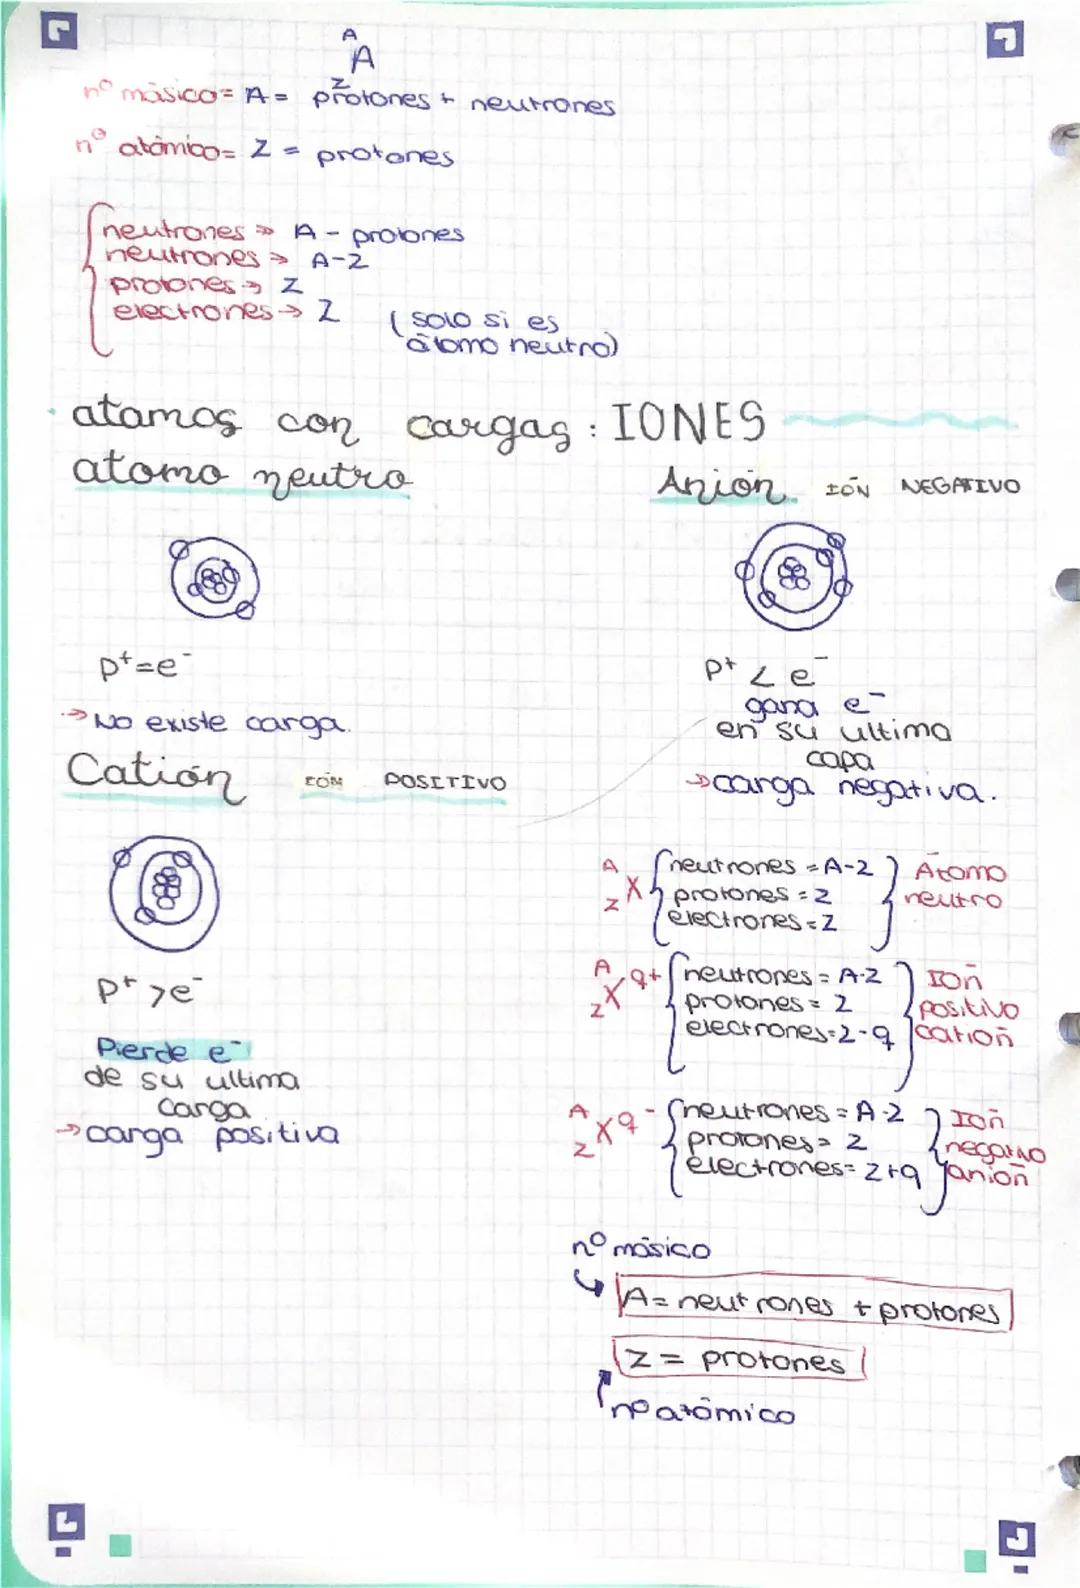 A
A
Z
nº másico = A = protones + neutrones
nº atómico = Z = protones
neutrones » A - protones
neutrones → A-Z
protones → Z
electrones → Z (solo si es
átomo neutro)
atamos con cargas : IONES
atomo neutro
Anión IÓN NEGATIVO
p⁺=e⁻
→ No existe carga.
p⁺ < e⁻
gana e⁻
en su ultima
capa
→ carga negativa.
Catión IÓN POSITIVO
p⁺ > e⁻
Pierde e⁻
de su ultima
carga
→ carga positiva
A
Z X neutrones = A-Z
protones = Z
electrones = Z
Átomo
neutro
A
Z X q+ neutrones = A-Z
protones = Z
electrones = Z-q
Ión
positivo
catión
A
Z X q- neutrones = A-Z
protones = Z
electrones = Z+q
Ión
negativo
anión
nº másico
A = neutrones + protones
Z = protones
nº atómico